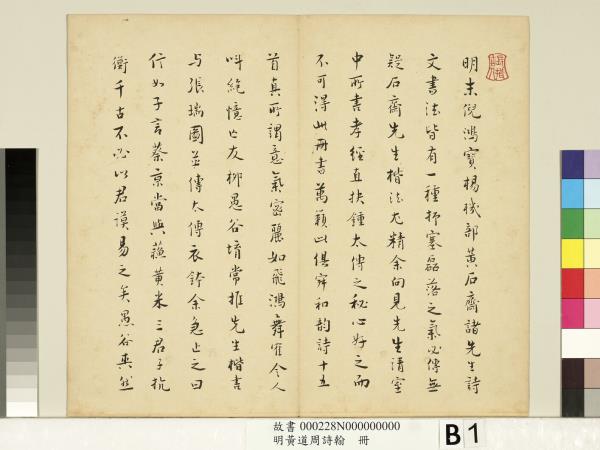 明末倪鴻寶楊機部黃石齋諸先生詩
文書法皆有一種抑塞磊落之氣必傳無
疑石齋先生楷法尤精余向見先生請室
中所書孝經直抉鍾太傅之秘心好之而
不可得此冊書萬籟此俱寂和韵詩十五
首真所謂意氣密麗如飛鴻舞鶴令人
叫絕憶亡友柳愚谷堉常推先生楷書
与張瑞圖並傳太傅衣鉢余急止之曰
信如子言蔡京當與蘇黃米三君子抗
衡千古不必以君謨易之矣愚谷爽然
故書 000228N000000000
明黃道周詩翰 冊
B1